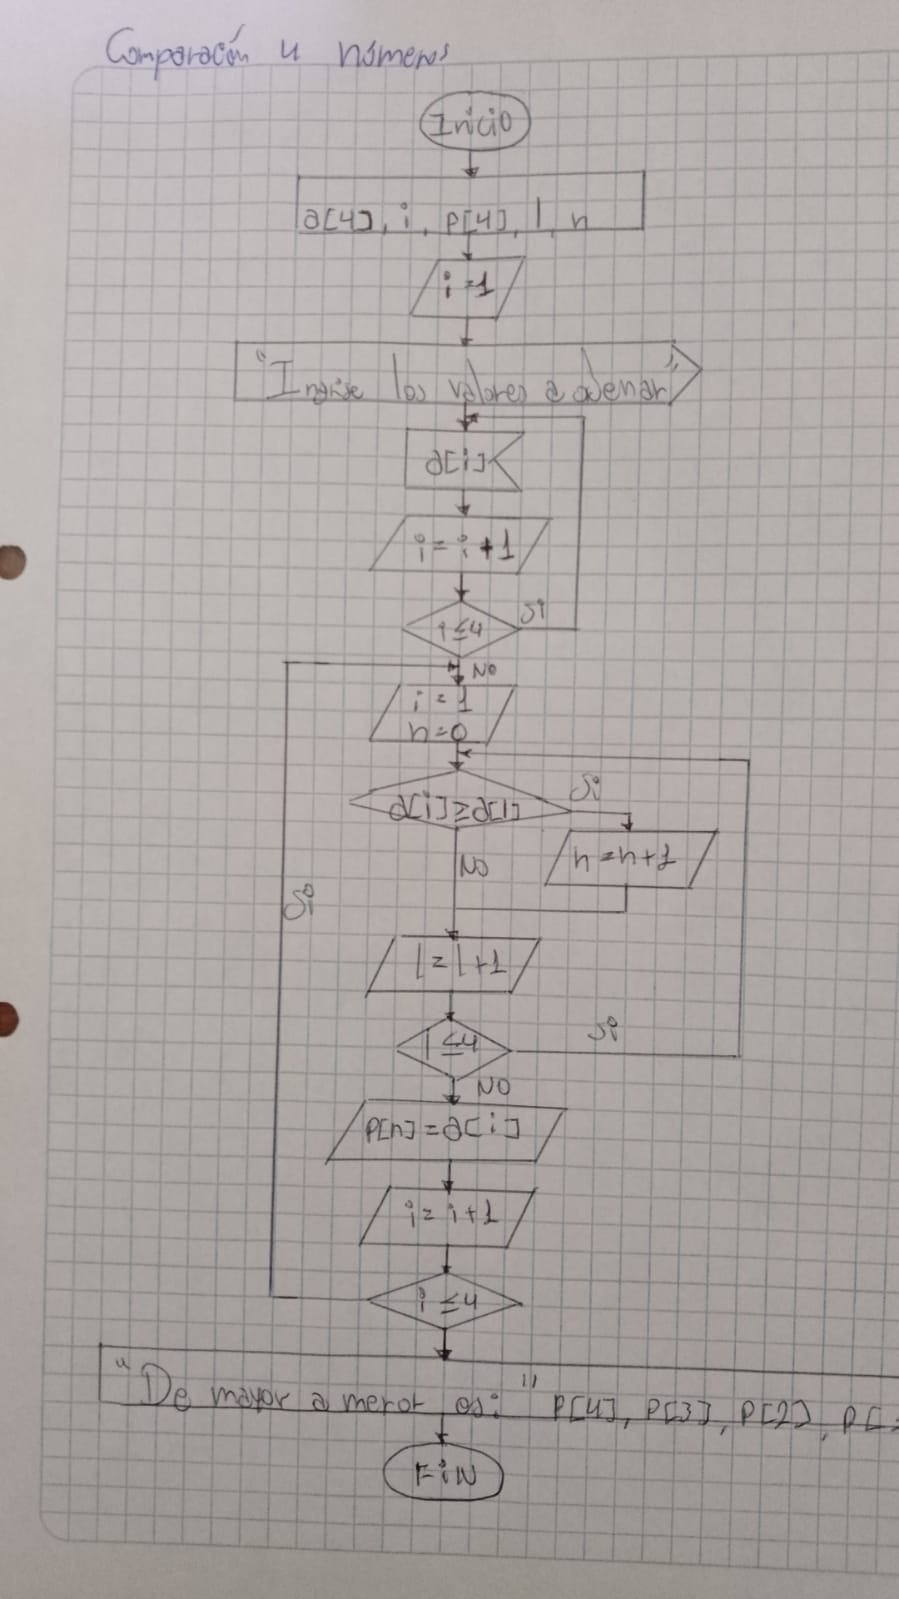 Comparación 4 números
Inicio
a[4], i, p[4], l, n
i=1
"Ingrse los valores a odenar"
a[i]
i=i+1
i≤4 Si
No
i=1
n=0
a[i]≥a[l] Si
n=n+1
No
Si
l=l+1
l≤4 Si
NO
p[n]=a[i]
i=i+1
i≤4
"De mayor a menor es:" P[4], P[3], P[2], P[
FiN